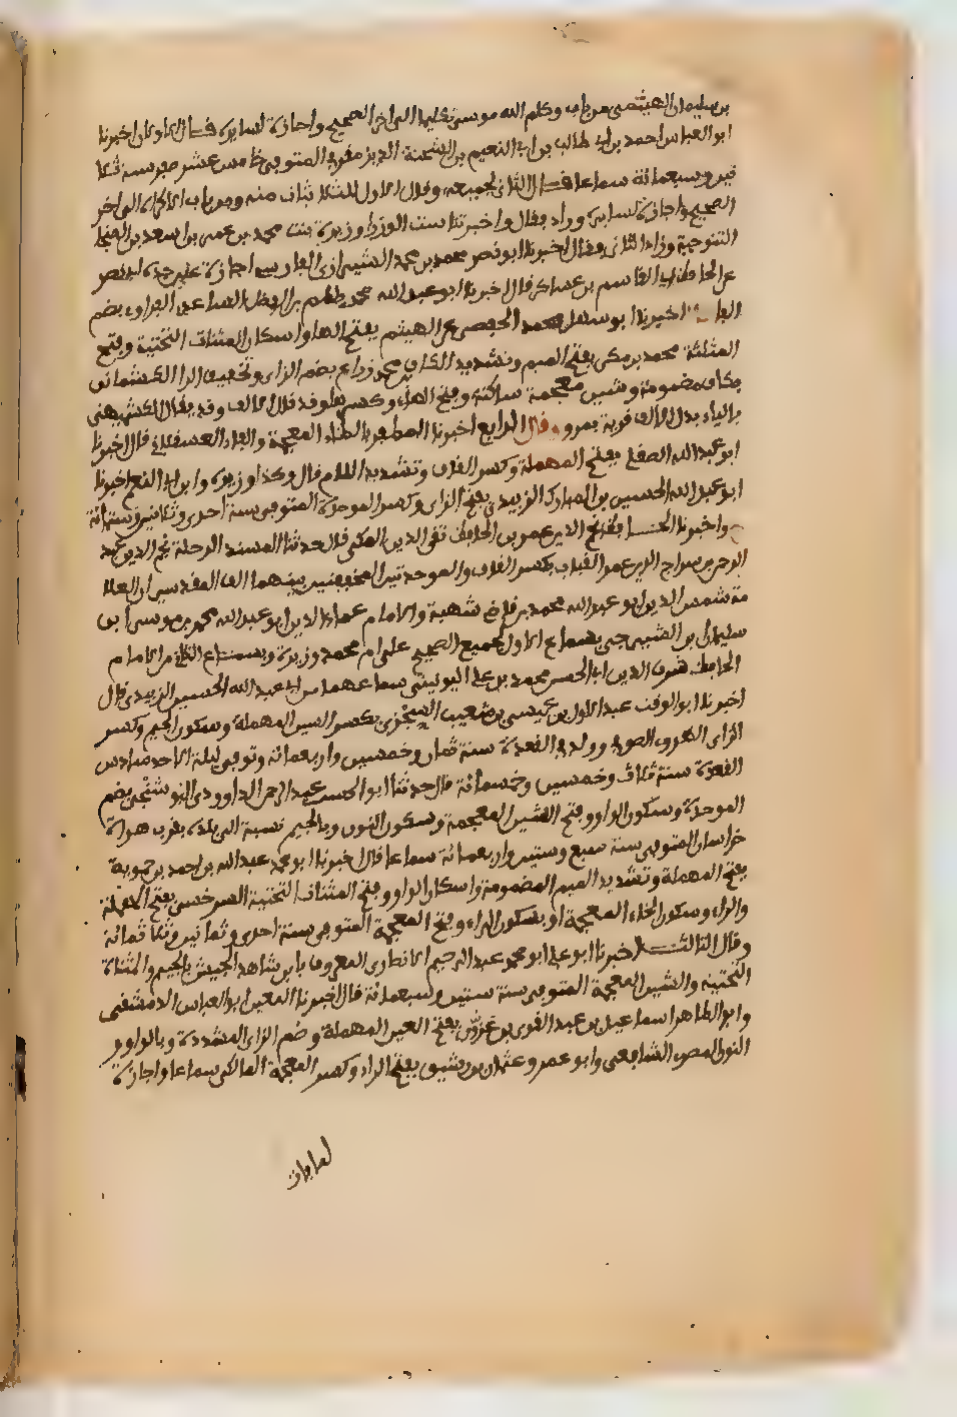 بن سليمان الهيثمي من باب وكلم الله موسى تكليما الى اخر الصحيح واجازة لسايره قال اخبرنا
ابو العباس احمد بن ابي طالب بن ابي النعيم بن الشحنة المتوفى خامس عشر صفر سنة ثلا
ثين وسبعمائة سماعا قال الثاني لجميعه وقال الاول للثلاثيات منه ومن باب الاكراه الى اخر
الصحيح واجازة لسايره وزاد فقال واخبرتنا ست الوزرا وزيرة بنت محمد بن عمر بن اسعد بن المنجا
التنوخية وزاد الثاني فقال اخبرنا ابو نصر محمد بن محمد الشيرازي الفارسي اجازة عن جده ابي نصر
عن الحافظ ابي القاسم بن عساكر قال اخبرنا ابو عبد الله محمد بن الفضل الساعدي الفراوي بضم
الفاء اخبرنا ابو سهل محمد الحفصي عن الهيثم بفتح الها واسكان المثناة التحتية وفتح
المثلثة محمد بن مكي بفتح الميم وتشديد الكاف بن محمد زراع بضم الزاي وتخفيف الرا الكشماني
بكاف مضمومة وشين معجمة ساكنة وفتح الهاء وكسر وقد قال الالف وقد يقال الكشميهني
بالياء بدل الالف قرية بمرو وقال الرابع اخبرنا المظفر بالظاء المعجمة والفاء العسقلاني قال اخبرنا
ابو عبد الله الصقلي بفتح المهملة وكسر القاف وتشديد اللام قال وكذا وزيرة وابو النعم اخبرنا
ابو عبد الله الحسين بن المبارك الزبيدي بفتح الزاي وكسر الموحدة المتوفى سنة احدى وثلاثين وستمائة
ح واخبرنا الحافظ تقي الدين المكي قال حدثنا المسند الرحلة نجم الدين عبد
الرحمن بن سراج الدين عمر القباب بكسر القاف والموحدتين المخففتين بينهما الف المقدسي ان العلا
مة شمس الدين ابو عبد الله محمد بن قاضي شهبة والامام عماد الدين ابو عبد الله محمد بن موسى ابن
سليمان بن الشيرجي بسماع الاول لجميع الصحيح على ام محمد وزيرة وبسماع الثاني من الامام
الحافظ شرف الدين ابي الحسن محمد بن علي اليونيني سماعهما من ابي عبد الله الحسين الزبيدي قال
اخبرنا ابو الوقت عبد الاول بن عيسى بن شعيب السجزي بكسر السين المهملة وسكون الجيم وكسر
الزاي الهروي الصوفي وولد في القعدة سنة ثمان وخمسين واربعمائة وتوفي ليلة الاحد سادس
القعدة سنة ثلاث وخمسين وخمسمائة قال حدثنا ابو الحسن عبد الرحمن الداوودي البوشنجي بضم
الموحدة وسكون الواو وفتح الشين المعجمة وسكون النون وبالجيم نسبة الى بلدة بقرب هراة
خراسان المتوفى سنة سبع وستين واربعمائة سماعا قال اخبرنا ابو محمد عبد الله بن احمد بن حموية
بفتح المهملة وتشديد الميم المضمومة واسكان الواو وفتح المثناة التحتية السرخسي بفتح المهملة
والراء وسكون الخاء المعجمة او بسكون الراء وفتح المعجمة المتوفى سنة احدى وثمانين وثلاثمائة
وقال الثالث اخبرنا ابو علي ابو محمد عبد الرحيم الانصاري المعروف بابن شاهد الجيش بالجيم والمثناة
التحتية والشين المعجمة المتوفى سنة ستين وسبعمائة قال اخبرنا المعين ابو العباس الدمشقي
وابو الطاهر اسماعيل بن عبد القوي بن عزون بفتح العين المهملة وضم الزاي المشددة وبالواو و
النون المصري الشافعي وابو عمرو عثمان بن رشيق بفتح الراء وكسر المعجمة المالكي سماعا واجازة
لما فات